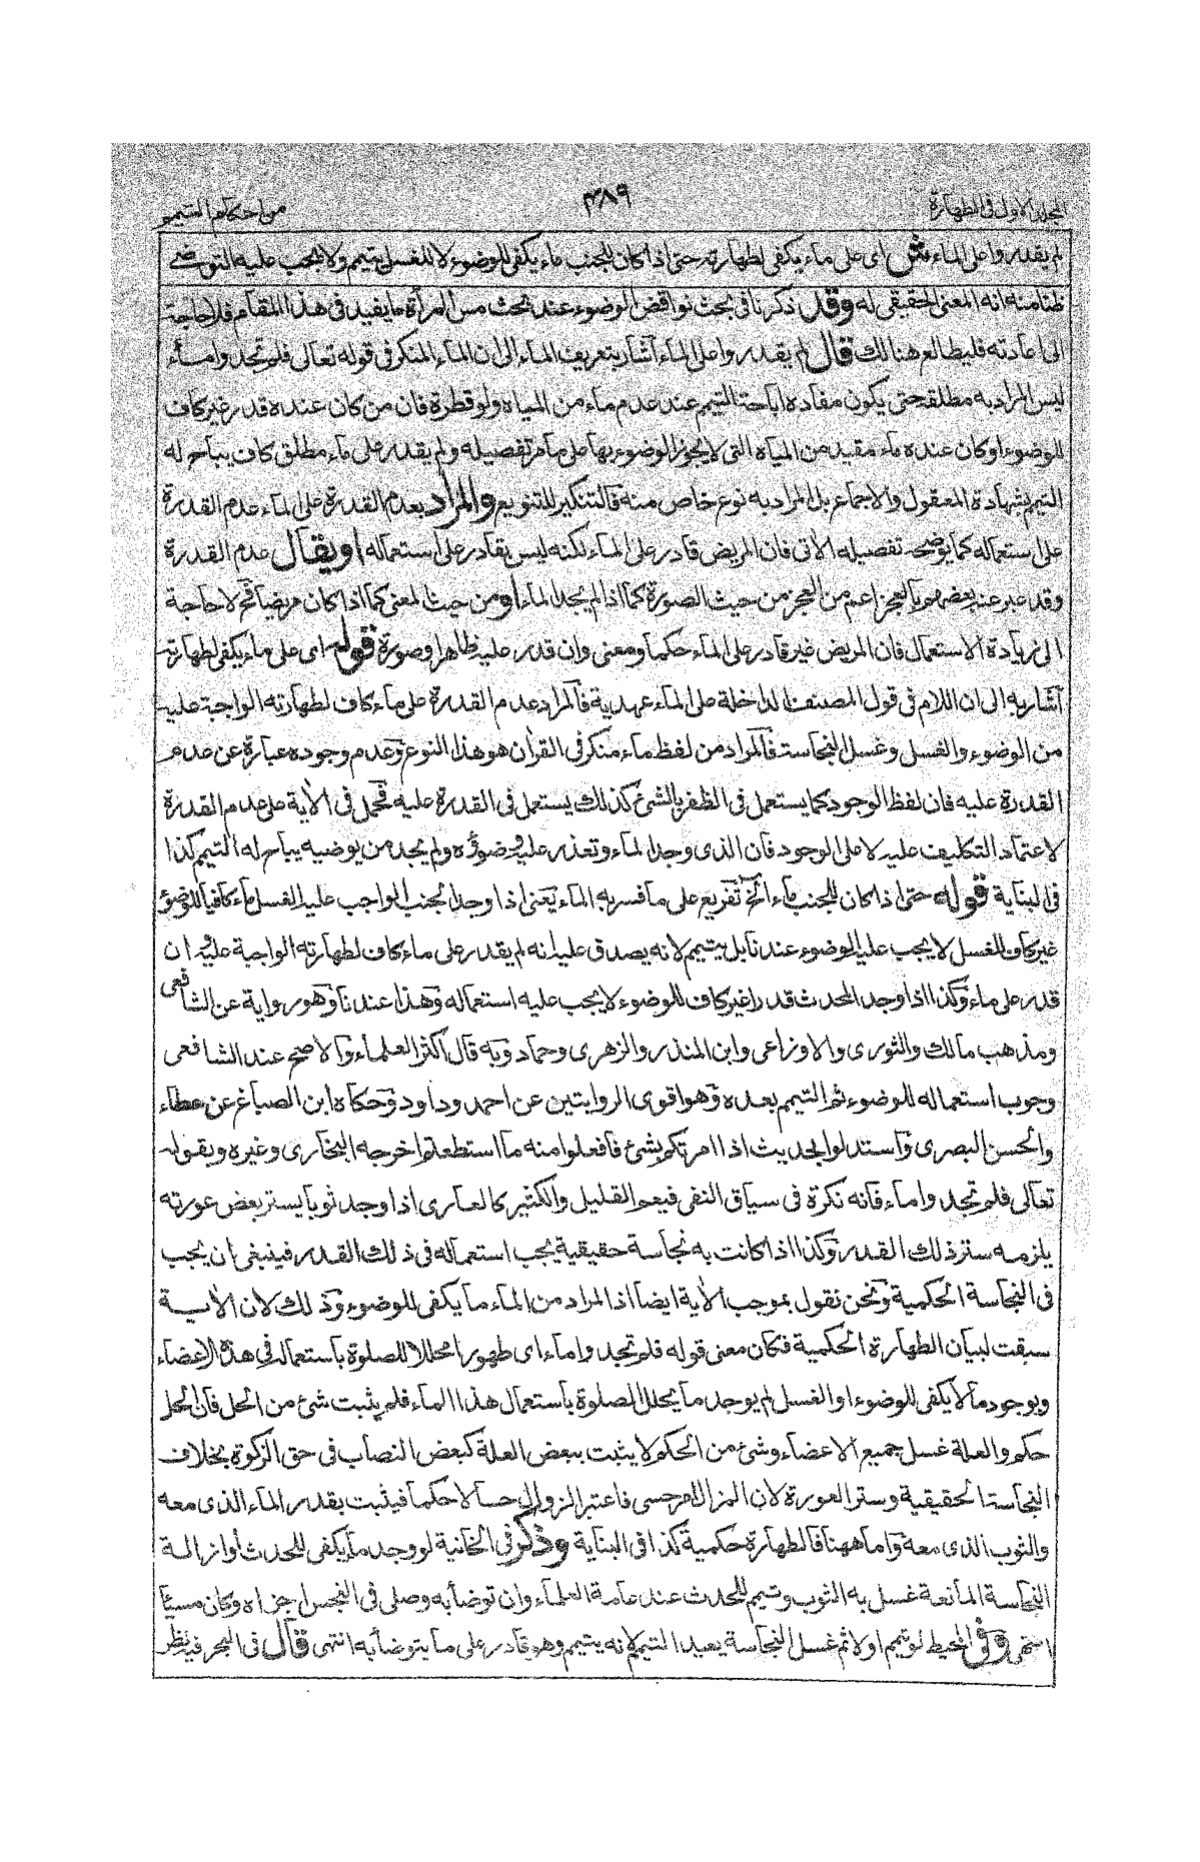 المجلد الاول فى الطهارة
٤٨٩
من احكام التيمم
لم يقدروا على الماء ش اى على ماء يكفى لطهارته حتى اذا كان للجنب ماء يكفى للوضوء لا للغسل يتيمم ولا يجب عليه التوضى
ظنا منه انه المعنى الحقيقى له وقد ذكرنا فى بحث نواقض الوضوء عند بحث مس المرأة ما يفيد فى هذا المقام فلا حاجة
الى اعادته فليطالع هنالك قال لم يقدروا على الماء آشار بتعريف الماء الى ان الماء المنكر فى قوله تعالى فلم تجدوا ماء
ليس المراد به مطلقه حتى يكون مفاده اباحة التيمم عند عدم ماء من المياه ولو قطرة فان من كان عنده قدر غير كاف
للوضوء او كان عنده ماء مقيد من المياه التى لا يجوز الوضوء بها على ما مر تفصيله ولم يقدر على ماء مطلق كاف يباح له
التيمم بشهادة المعقول والاجماع بل المراد به نوع خاص منه فالتنكير للتنويع والمراد بعدم القدرة على الماء عدم القدرة
على استعماله كما يوضحه تفصيله الاتى فان المريض قادر على الماء لكنه ليس بقادر على استعماله او يقال عدم القدرة
وقد عبر عنه بعضهم بالعجز اعم من العجز من حيث الصورة كما اذا لم يجد الماء او من حيث المعنى كما اذا كان مريضا فح لا حاجة
الى زيادة الاستعمال فان المريض غير قادر على الماء حكما ومعنى وان قدر عليه ظاهرا وصورة قوله اى على ماء يكفى لطهارته
آشار به الى ان اللام فى قول المصنف الداخلة على الماء عهدية فالمراد عدم القدرة على ماء كاف لطهارته الواجبة عليه
من الوضوء والغسل وغسل النجاسة فالمراد من لفظ ماء منكر فى القرآن هو هذا النوع وعدم وجوده عبارة عن عدم
القدرة عليه فان لفظ الوجود كما يستعمل فى الظفر بالشئ كذلك يستعمل فى القدرة عليه فحمل فى الآية على عدم القدرة
لاعتماد التكليف عليه لا على الوجود فان الذى وجد الماء وتعذر عليه وضوؤه ولم يجد من يوضيه يباح له التيمم كذا
فى البناية قوله حتى اذا كان للجنب ماء الخ تفريع على ما فسر به الماء يعنى اذا وجد الجنب الواجب عليه الغسل ماء كافيا للوضوء
غير كاف للغسل لا يجب عليه الوضوء عندنا بل يتيمم لانه يصدق عليه انه لم يقدر على ماء كاف لطهارته الواجبة عليه وان
قدر على ماء وكذا اذا وجد المحدث قدرا غير كاف للوضوء لا يجب عليه استعماله وهذا عندنا وهو رواية عن الشافعى
ومذهب مالك والثورى والاوزاعى وابن المنذر والزهرى وحماد وبه قال اكثر العلماء والاصح عند الشافعى
وجوب استعماله للوضوء ثم التيمم بعده وهو اقوى الروايتين عن احمد وداود وحكاه ابن الصباغ عن عطاء
والحسن البصرى واستدلوا بحديث اذا امرتكم بشئ فافعلوا منه ما استطعتم اخرجه البخارى وغيره وبقوله
تعالى فلم تجدوا ماء فانه نكرة فى سياق النفى فيعم القليل والكثير كالعارى اذا وجد ثوبا يستر بعض عورته
يلزمه ستر ذلك القدر وكذا اذا كانت به نجاسة حقيقية يجب استعماله فى ذلك القدر فينبغى ان يجب
فى النجاسة الحكمية ونحن نقول بموجب الآية ايضا اذ المراد من الماء ما يكفى للوضوء وذلك لان الآية
سبقت لبيان الطهارة الحكمية فكان معنى قوله فلم تجدوا ماء اى طهورا محللا للصلوة باستعماله فى هذه الاعضاء
وبوجود ما لا يكفى للوضوء او الغسل لم يوجد ما يحلل الصلوة باستعمال هذا الماء فلم يثبت شئ من الحل فان الحل
حكم والعلة غسل جميع الاعضاء وشئ من الحكم لا يثبت ببعض العلة كبعض النصاب فى حق الزكوة بخلاف
النجاسة الحقيقية وستر العورة لان المزال امر حسى فاعتبر الزوال حسا لا حكما فيثبت بقدر الماء الذى معه
والثوب الذى معه واما ههنا فالطهارة حكمية كذا فى البناية وذكر فى الخانية لو وجد ما يكفى للحدث او ازالة
النجاسة المانعة غسل به الثوب وتيمم للحدث عند عامة العلماء وان توضأ به وصلى فى النجس اجزاه وكان مسيئا
انتهى وفى المحيط لو تيمم اولا ثم غسل النجاسة يعيد التيمم لانه يتيمم وهو قادر على ما يتوضأ به انتهى قال فى البحر فيه نظر